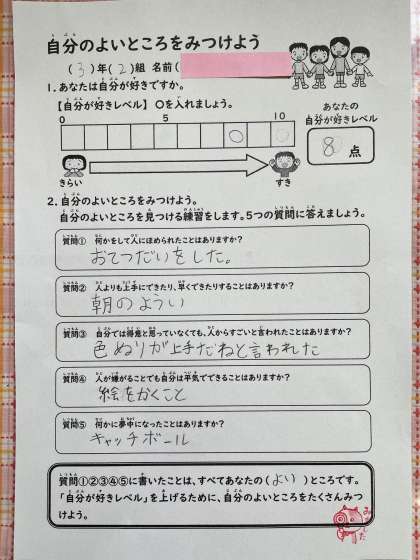 自分のよいところをみつけよう
(3)年(2)組 名前(
1.あなたは自分が好きですか。
【自分が好きレベル】 ○を入れましょう。
0 5 10
きらい すき
あなたの
自分が好きレベル
8 点
2.自分のよいところをみつけよう。
自分のよいところを見つける練習をします。5つの質問に答えましょう。
質問① 何かをして人にほめられたことはありますか?
おてつだいをした。
質問② 人よりも上手にできたり、早くできたりすることはありますか?
朝のようい
質問③ 自分では得意と思っていなくても、人からすごいと言われたことはありますか?
色ぬりが上手だねと言われた
質問④ 人が嫌がることでも自分は平気でできることはありますか?
絵をかくこと
質問⑤ 何かに夢中になったことはありますか?
キャッチボール
質問①②③④⑤に書いたことは、すべてあなたの(よい)ところです。
「自分が好きレベル」を上げるために、自分のよいところをたくさんみつ
けよう。